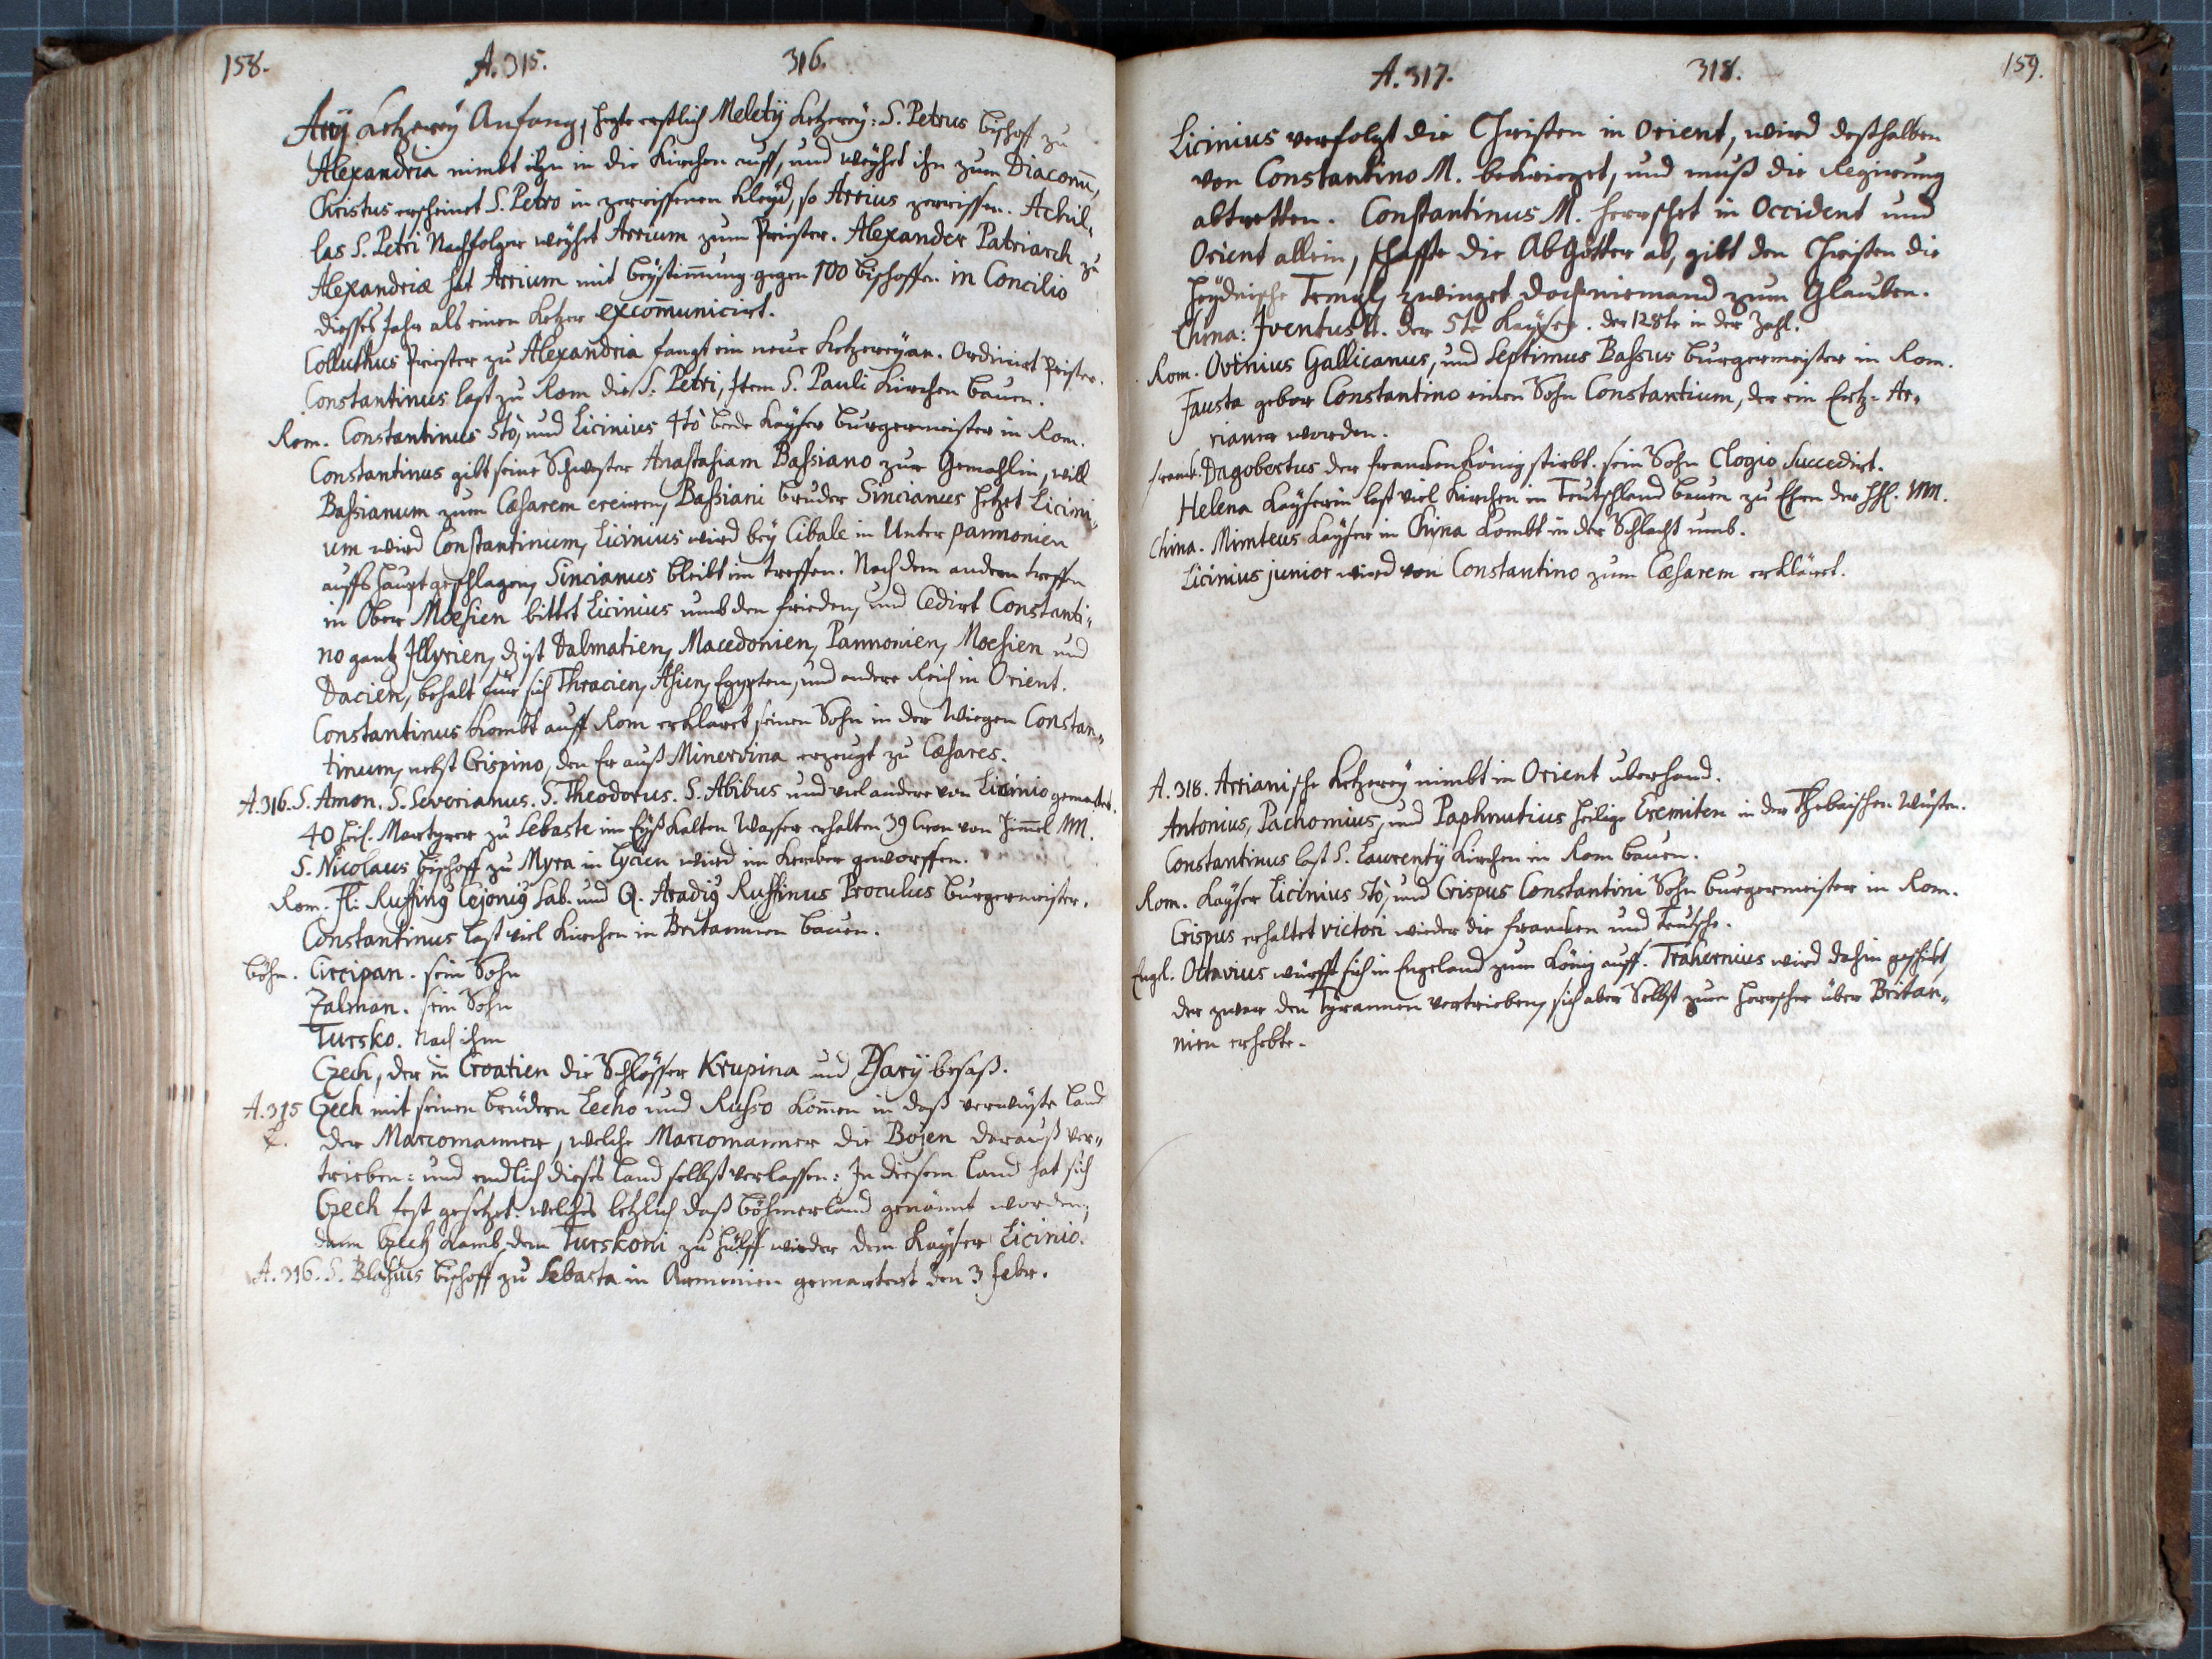 158. A. 315. 316.
Arij Ketzerey Anfang, hegte erstlich Meletij Ketzerey: S. Petrus bischoff zu
Alexandria nimbt ihn in die Kirchen auff, und weyhet ihn zum Diaconū,
Christus erscheinet S. Petro in zerrissenen Kleyd, so Arrius zerrissen. Achil-
las S. Petri Nachfolger weyhet Arrium zum Priester. Alexander Patriarch zu
Alexandriæ hat Arrium mit beystim̄ung gegen 100 bischoffen in Concilio
diesses Jahr als einen Ketzer excom̄unicirt.
Colluthus Priester zu Alexandria fangt ein neue Ketzerey an. Ordinirt Prister.
Constantinus last zu Rom die S. Petri, Item S. Pauli Kirchen bauen.
Rom. Constantinus 5tò, und Licinius 4tò beede Kayser burgermeister in Rom.
Constantinus gibt seine Schwester Anastasiam Bassiano zur Gemahlin, will
Bassianum zum Cæsarem creiren, Bassiani bruder Sincianus hetzet Licini-
um wird Constantinum, Licinius wird bey Cibale in Unter pannonien
auffs haupt geschlagen, Sincianus bleibt im treffen. Nach dem andern treffen
in Ober Moesien bittet Licinius umb den frieden, und Cedirt Constanti-
no gantz Illyrien, dz ist Dalmatien, Macedonien, Pannonien, Moesien und
Dacien, behalt für sich Thracien, Asien, Egypten, und andere Reich in Orient.
Constantinus kombt auff Rom erkläret seinen Sohn in der Wiegen Constan-
tinum, nebst Crispino, den Er auß Minervina erzeugt zu Cæsares.
A. 316. S. Amon. S. Severianus. S. Theodorus. S. Abibus und viel andere von Licinio gemartert.
40 heil. Martyrer zu Sebaste im Eyßkalten Wasser erhalten 39 Cron von him̄el MM.
S. Nicolaus bischoff zu Myra in Lycien wird im Kercker geworffen.
Rom. Fl. Ruffinꝰ Cejoniꝰ Sab. und Q. Aradiꝰ Ruffinus Proculus burgermeister.
Constantinus last viel Kirchen in Britannien bauen.
Böhm. Circipan. sein Sohn
Zalman. sein Sohn
Tursko. Nach ihm
Czech, der in Croatien die Schlösser Krupina und Psarij besaß.
A. 315 Czech mit seinen brüdern Lecho und Russo kom̄en in daß verwüste Land
der Marcomanner, welche Marcomanner die Bojen darauß ver-
trieben: und endlich dieses Land selbst verlassen: In diesem Land hat sich
Czech fest gesetzet: welches letzlich daß böhmerland genannt worden,
dann Czech kamb dem Turskoni zu hülff wieder dem Kayser Licinio.
A. 316. S. Blasius bischoff zu Sebasta in Armenien gemartert den 3 Febr.
A. 317. 318. 159.
Licinius verfolgt die Christen in Orient, wird desthalben
von Constantino M. bekrieget, und muß die Regierung
abtretten. Constantinus M. herrschet in Occident und
Orient allein, schafft die AbGötter ab, gibt den Christen die
heydnische Tempel, zwinget doch niemand zum Glauben.
China: Iventus II. der 5te Kayser. der 128te in der Zahl.
Rom. Ovinius Gallicanus, und Septimus Bassus burgermeister in Rom.
Fausta gebar Constantino einen Sohn Constantium, der ein Ertz-Ar-
rianer worden.
franck. Dagobertus der francken König stirbt. sein Sohn Clogio Succedirt.
Helena Kayserin last viel Kirchen in Teutschland bauen zu Ehren der HH. MM.
China. Mimteus Kayser in China kombt in der Schlacht umb.
Licinius junior wird von Constantino zum Cæsarem erkläret.
A. 318. Arrianische Ketzerey nimbt in Orient uberhand.
Antonius, Pachomius, und Paphnutius heilige Eremiten in der Thebaischen Wüsten.
Constantinus last S. Laurentij Kirchen in Rom bauen.
Rom. Kayser Licinius 5tò, und Crispus Constantini Sohn burgermeister in Rom.
Crispus erhaltet victori wieder die francken und Teutsche.
Engl. Octavius würfft sich in Engeland zum König auff. Trahernius wird dahin geschickt,
der zwar den Tyrannen vertrieben, sich aber Selbst zum herrscher über Britan-
nien erhebte.